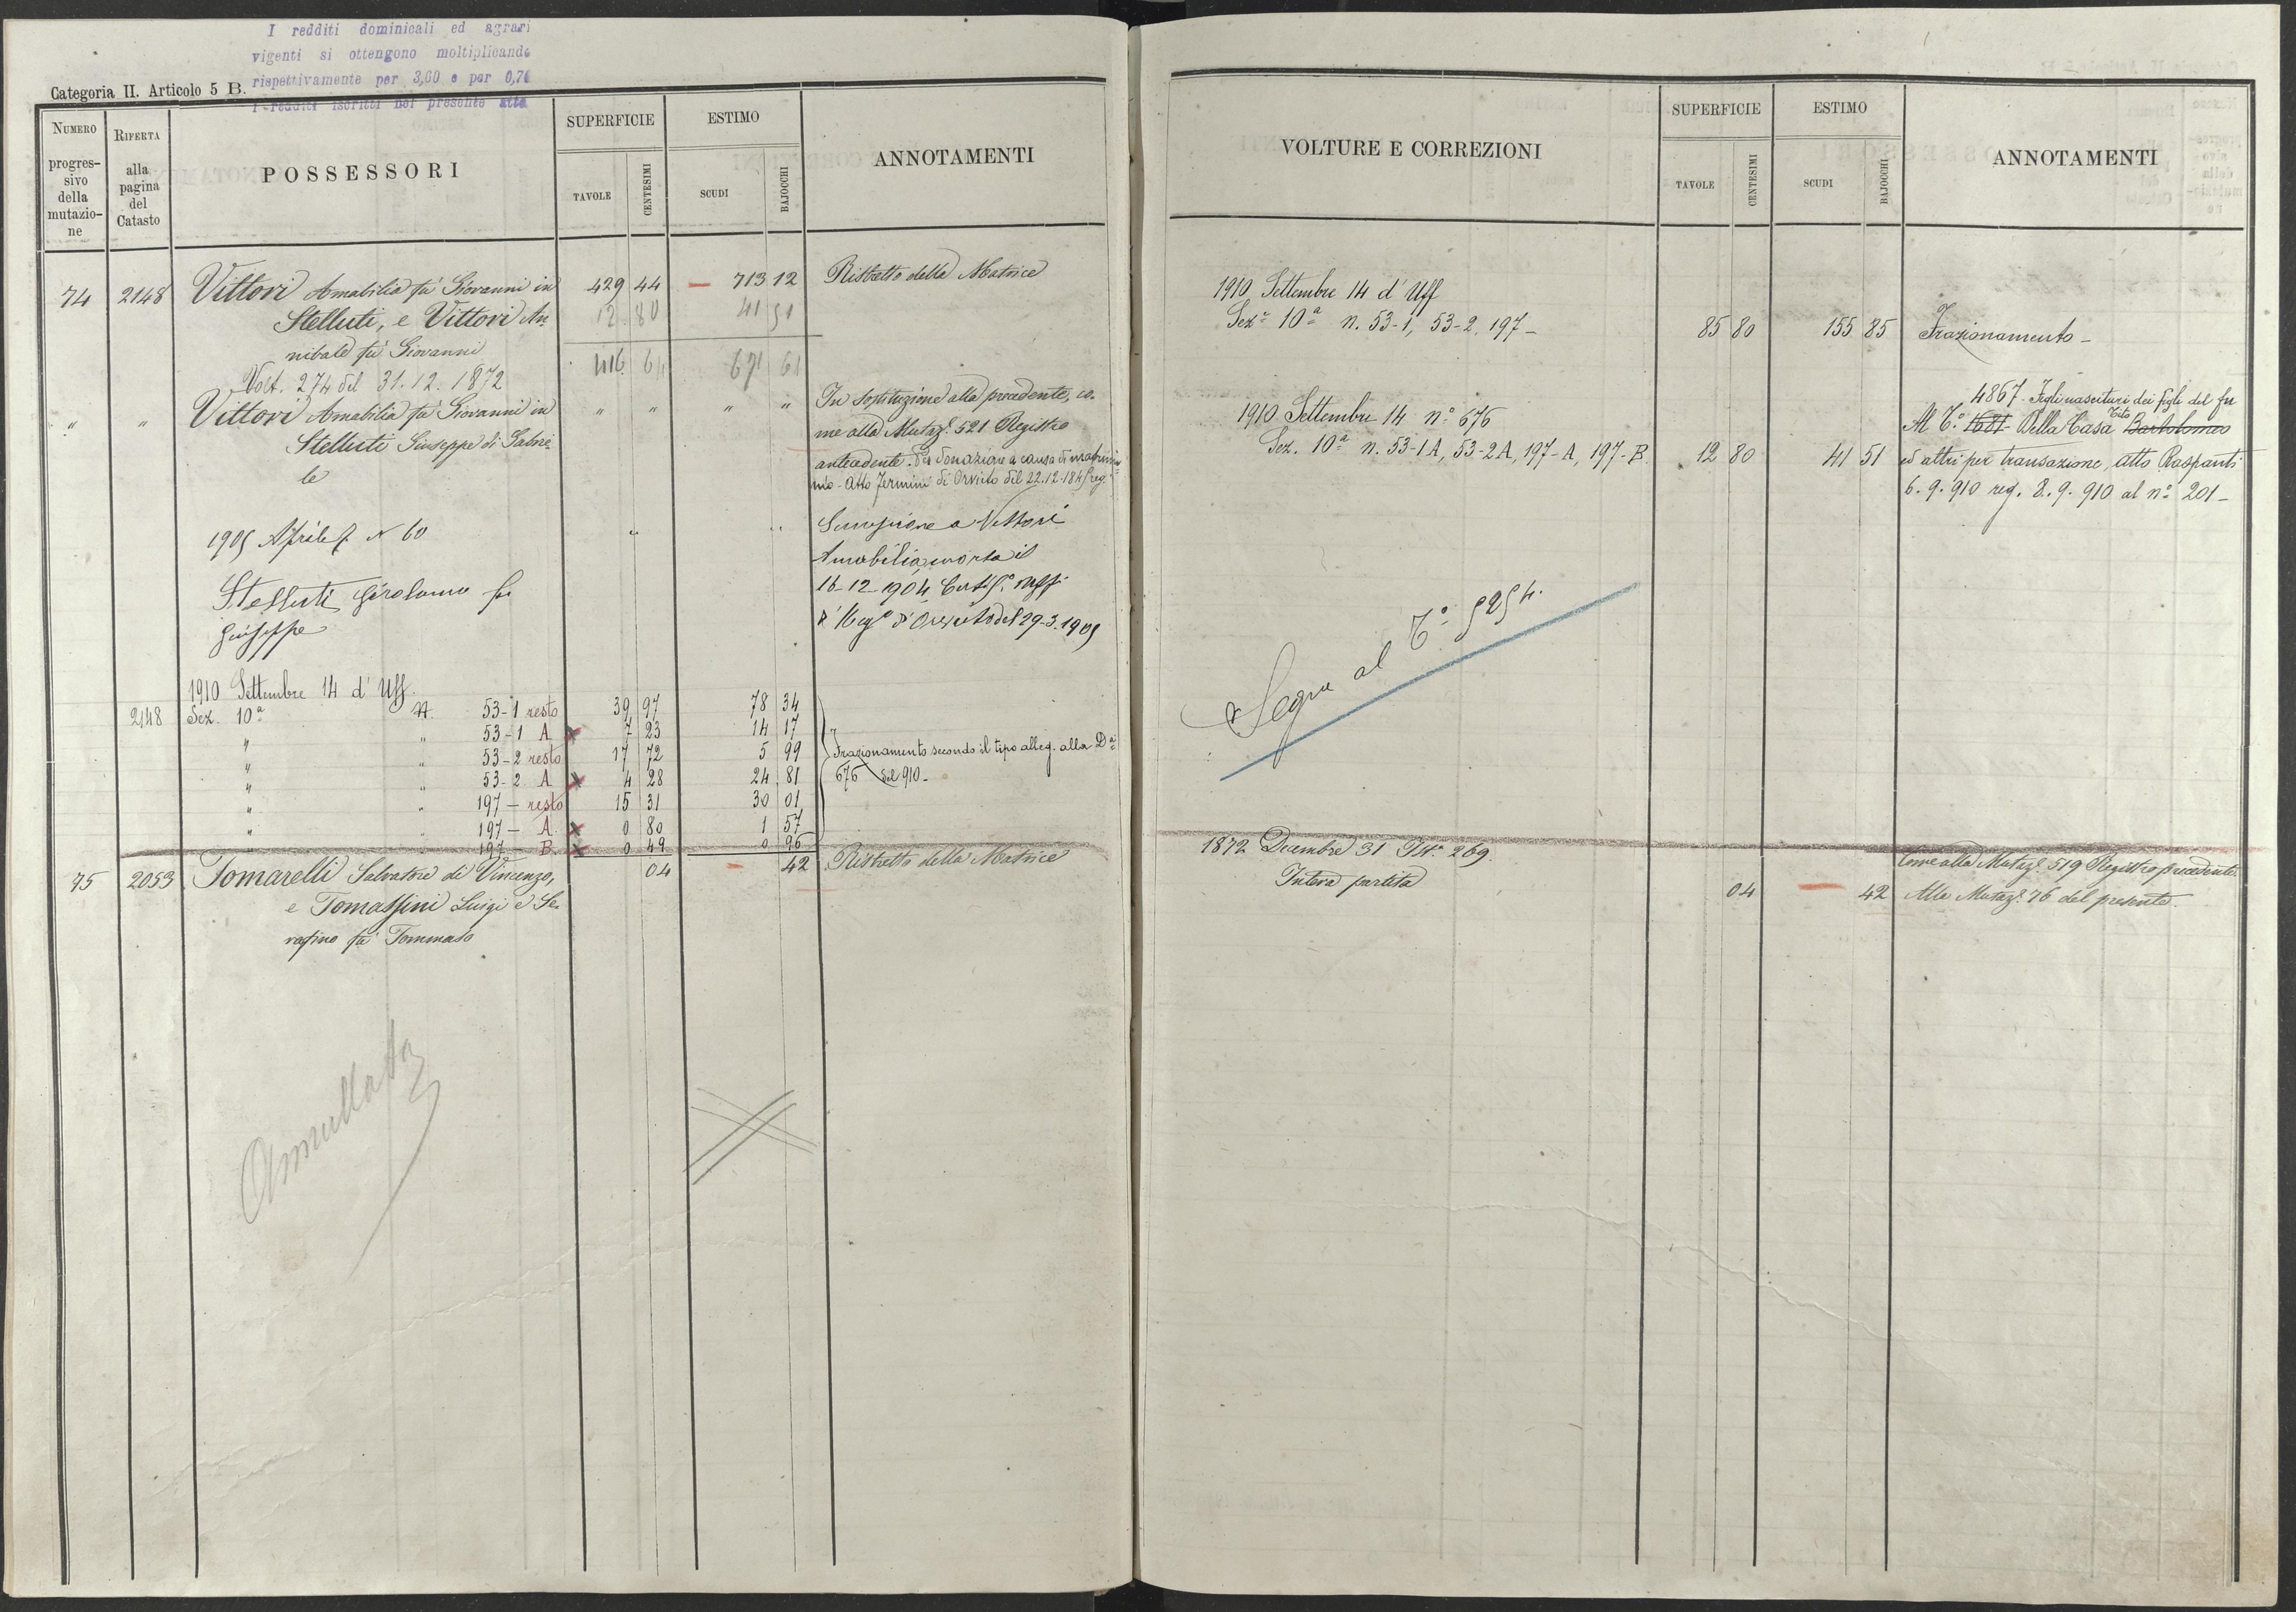 I redditi dominicali ed agrari
vigenti si ottengono moltiplicando
rispettivamente per 3,60 e per 0,74
i redditi iscritti nel presente atto
Categoria II. Articolo 5 B.
NUMERO progres-sivo della mutazio-ne
RIFERTA alla pagina del Catasto
POSSESSORI
SUPERFICIE
TAVOLE CENTESIMI
ESTIMO
SCUDI BAJOCCHI
ANNOTAMENTI
74 2148 Vittori Amabilia fu Giovanni in 429 44 — 713 12 Ristretto della Matrice
Stelluti, e Vittori An= 12 80 41 51
nibale fu Giovanni 416 64 671 61
Volt. 274 del 31.12.1872
" " Vittori Amabilia fu Giovanni in " " " " In sostituzione alla precedente, co-
Stelluti Giuseppe di Gabrie- me alla Mutaz.e 521 Registro
le antecedente. Per donazione a causa di matrimo=
nio - Atto Fermini di Orvieto del 22.12.184 reg.
1905 Aprile 7 N 60 " " Successione a Vittori
Amabilia morta il
16-12-1904 Certif.o Uff.
Stelluti Girolamo fu
Giuseppe
d'Reg.o d'Orvieto del 29-3-1905
1910 Settembre 14 d' Uff.
2148 Sez. 10a N. 53-1 resto 39 97 78 34
" " 53-1 A × 7 23 14 17
" " 53-2 resto 17 72 5 99 Frazionamento secondo il tipo alleg. alla Da
" " 53-2 A × 4 28 24 81 676 del 910-
" " 197 - resto 15 31 30 01
" " 197 - A × 0 80 1 57
" " 197 - B × 0 49 0 96
75 2053 Tomarelli Salvatore di Vincenzo, 04 — 42 Ristretto della Matrice
e Tomassini Luigi e Se-
rafino fu Tommaso
Annullata
VOLTURE E CORREZIONI
SUPERFICIE
TAVOLE CENTESIMI
ESTIMO
SCUDI BAJOCCHI
ANNOTAMENTI
1910 Settembre 14 d' Uff
Sez.e 10a n. 53-1, 53-2, 197- 85 80 155 85 Frazionamento-
4867 - Figli nascituri dei figli del fu
1910 Settembre 14 n° 676 Al T.° 1681 Della Casa Tito Bartolomeo
Sez. 10a n. 53-1A, 53-2A, 197-A, 197-B 12 80 41 51 ed altri per transazione, atto Raspanti
6.9.910 reg. 8.9.910 al n° 201-
Segue al T.° 5254.
1872 Dicembre 31 269 Come alla Mutaz.e 519 Registro precedente.
Intera partita 04 — 42 Alla Mutaz.e 76 del presente.